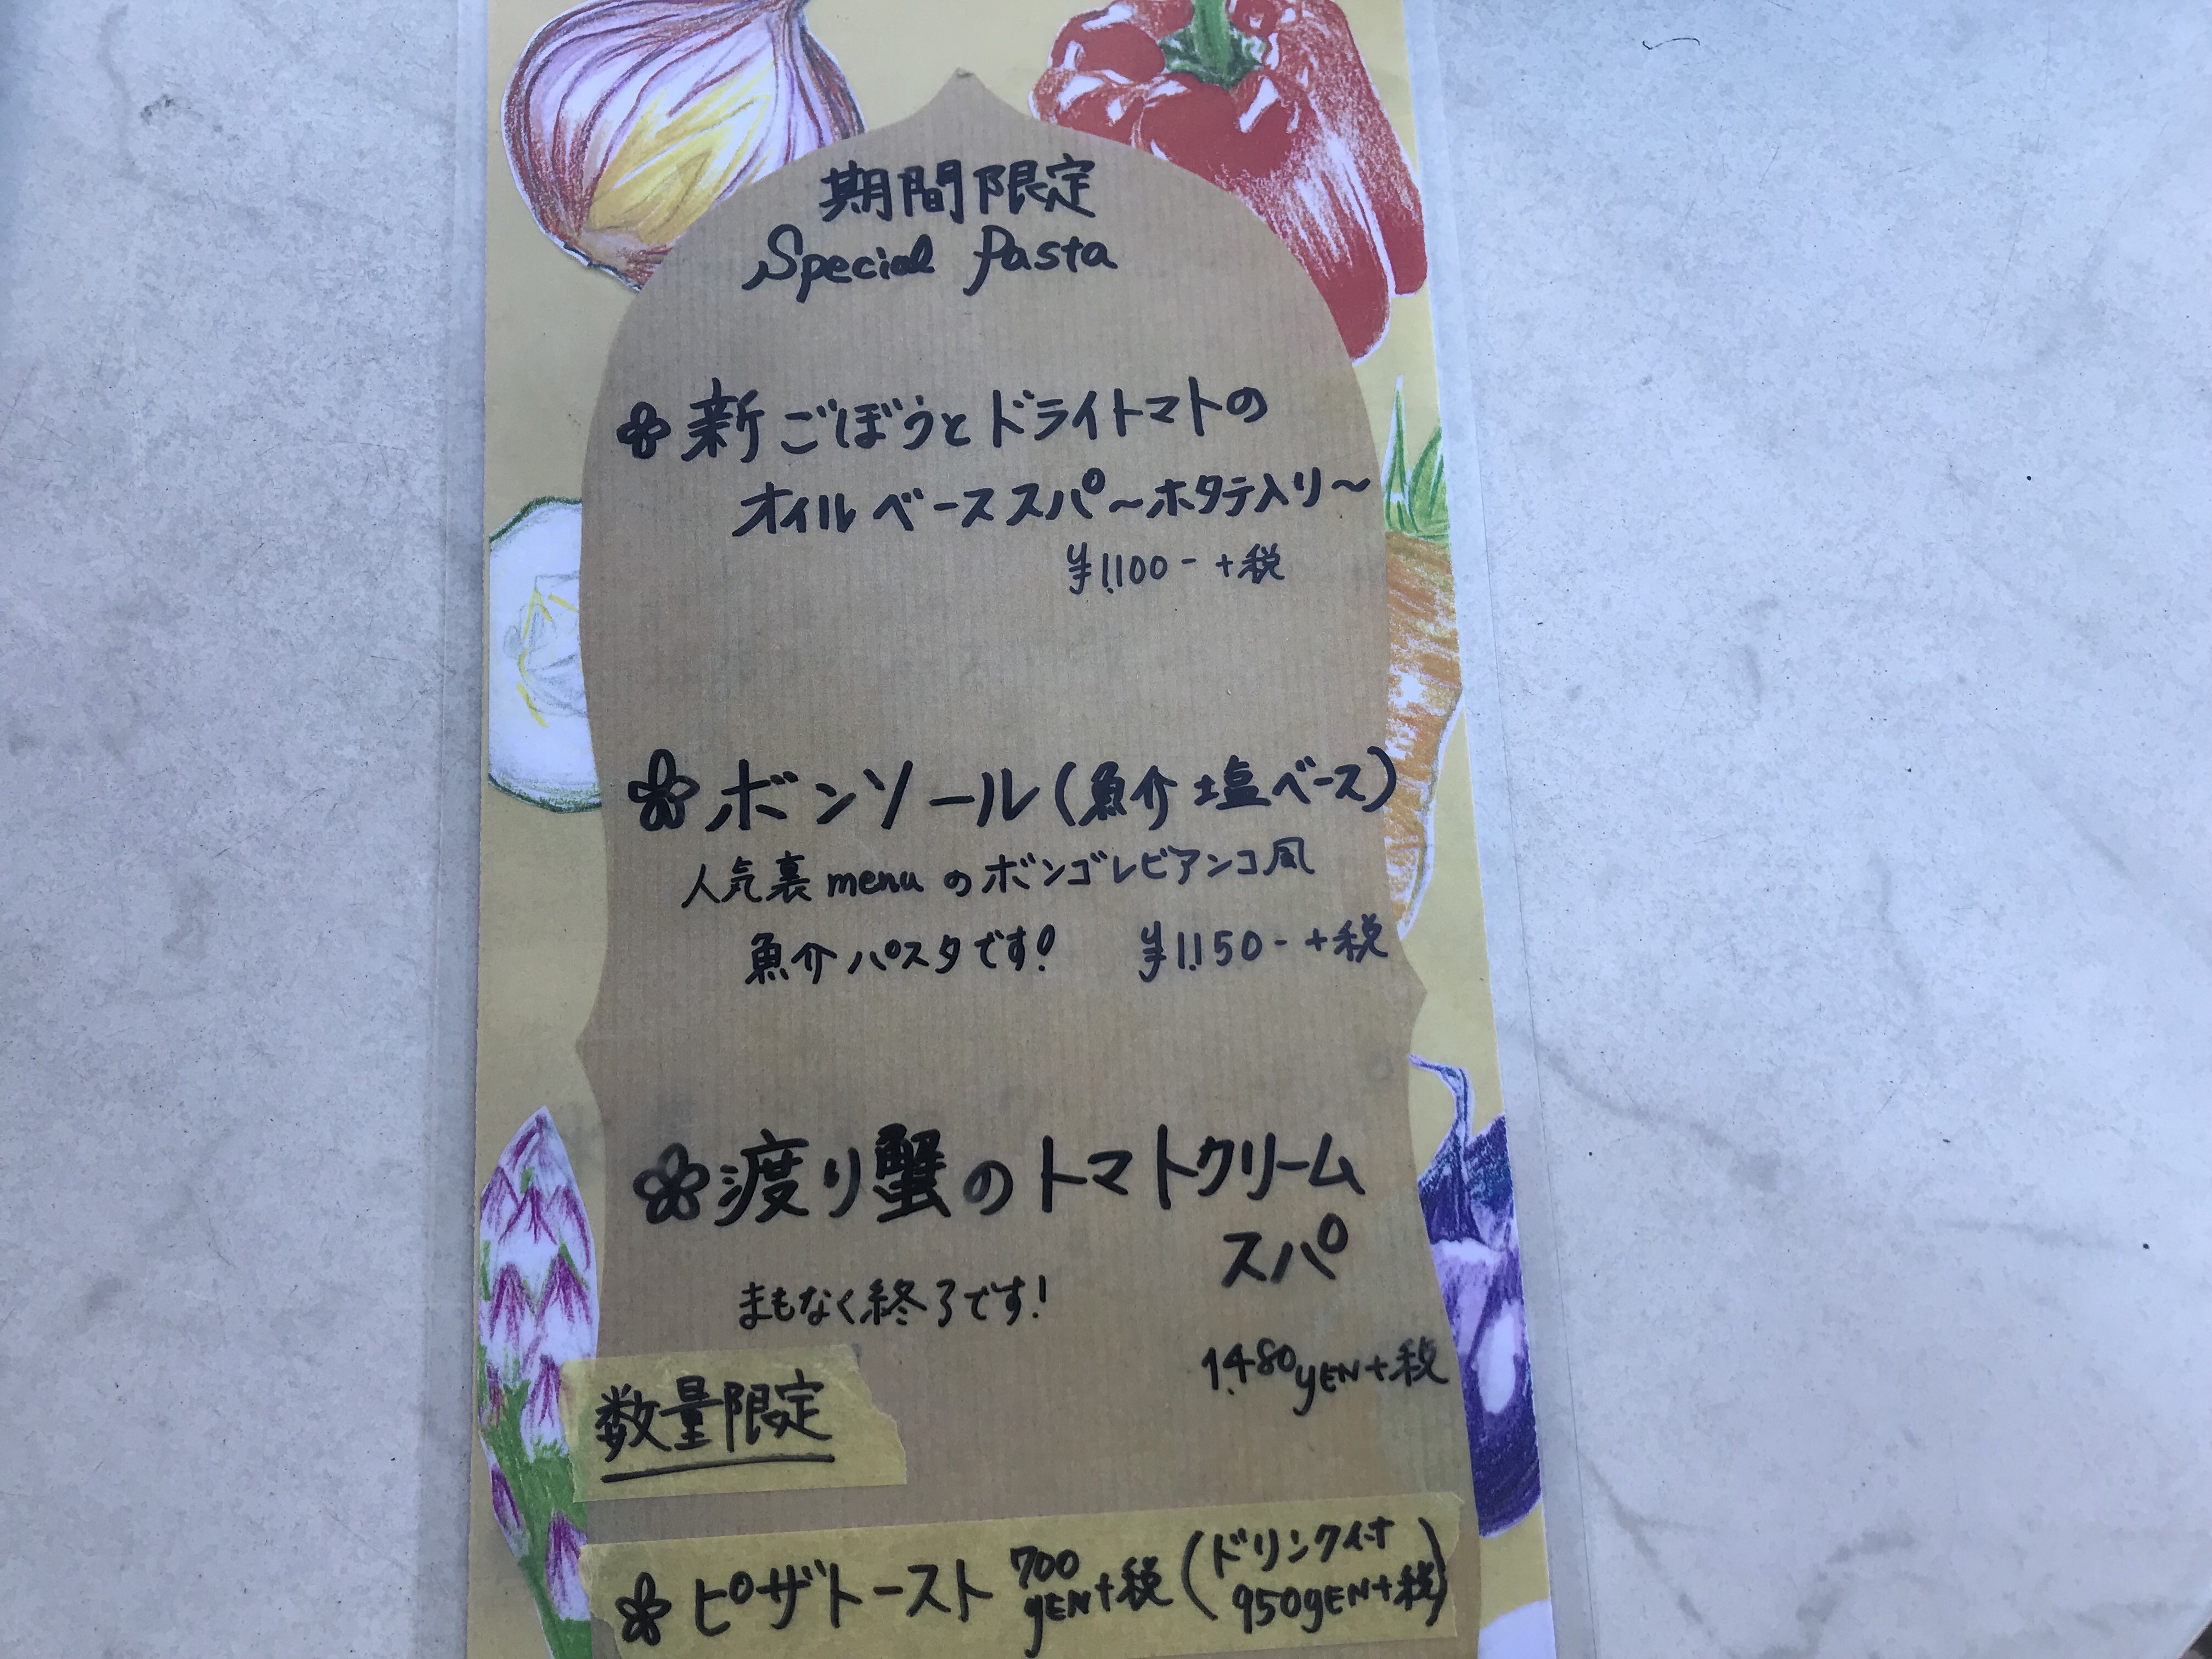 期間限定
Special Pasta
新ごぼうとドライトマトの
オイルベーススパ～ホタテ入り～
¥1,100-+税
ボンソール(魚介塩ベース)
人気裏menuのボンゴレビアンコ風
魚介パスタです! ¥1,150-+税
渡り蟹のトマトクリーム
スパ
まもなく終了です!
1,480yEN+税
数量限定
ピザトースト 700yEN+税(ドリンク付950yEN+税)